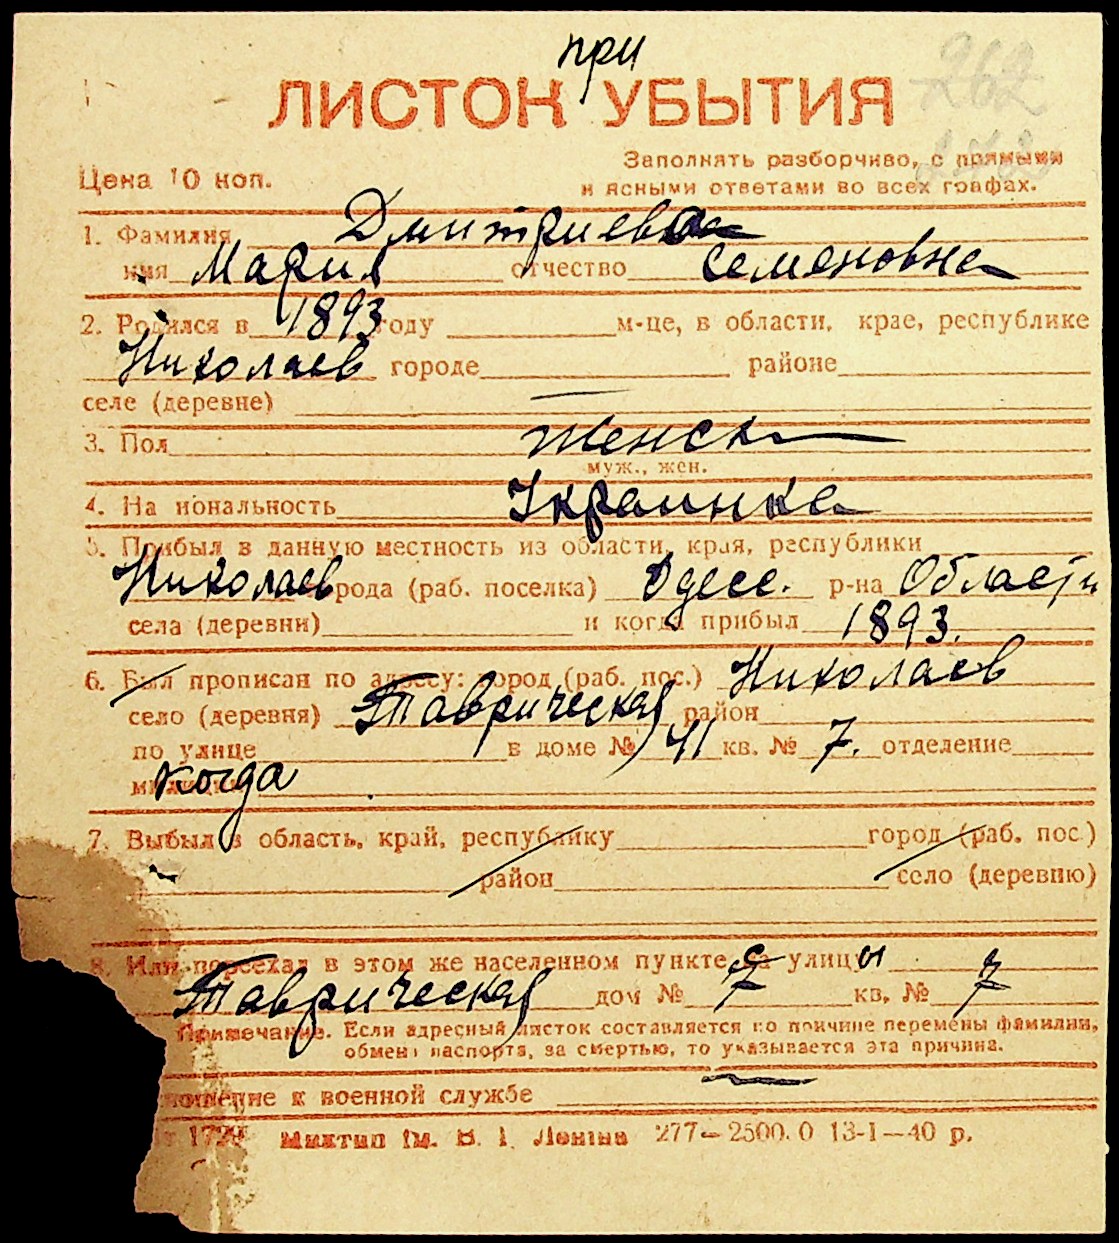 при
ЛИСТОК УБЫТИЯ
262
Цена 10 коп.
Заполнять разборчиво, с прямыми
и ясными ответами во всех графах.
1. Фамилия Дмитриева
имя Мария отчество Семеновна
2. Родился в 1893 году м-це, в области, крае, республике
Николаев городе районе
селе (деревне) —
3. Пол Женск
муж., жен.
4. На иональность Украинка
5. Прибыл в данную местность из области, края, республики
Николаев города (раб. поселка) Одесс. р-на Области
села (деревни) и когда прибыл 1893.
6. Был прописан по адресу: город (раб. пос.) Николаев
село (деревня) Таврическая район
по улице в доме № 41 кв. № 7. отделение
милиции когда
7. Выбыл в область, край, республику город (раб. пос.)
район село (деревню)
8. Или переехал в этом же населенном пункте с улицы
Таврическая дом № 7 кв. № 7
Примечание. Если адресный листок составляется по причине перемены фамилии,
обмена паспорта, за смертью, то указывается эта причина.
ношение к военной службе —
277—2500.0 13-I—40 р.